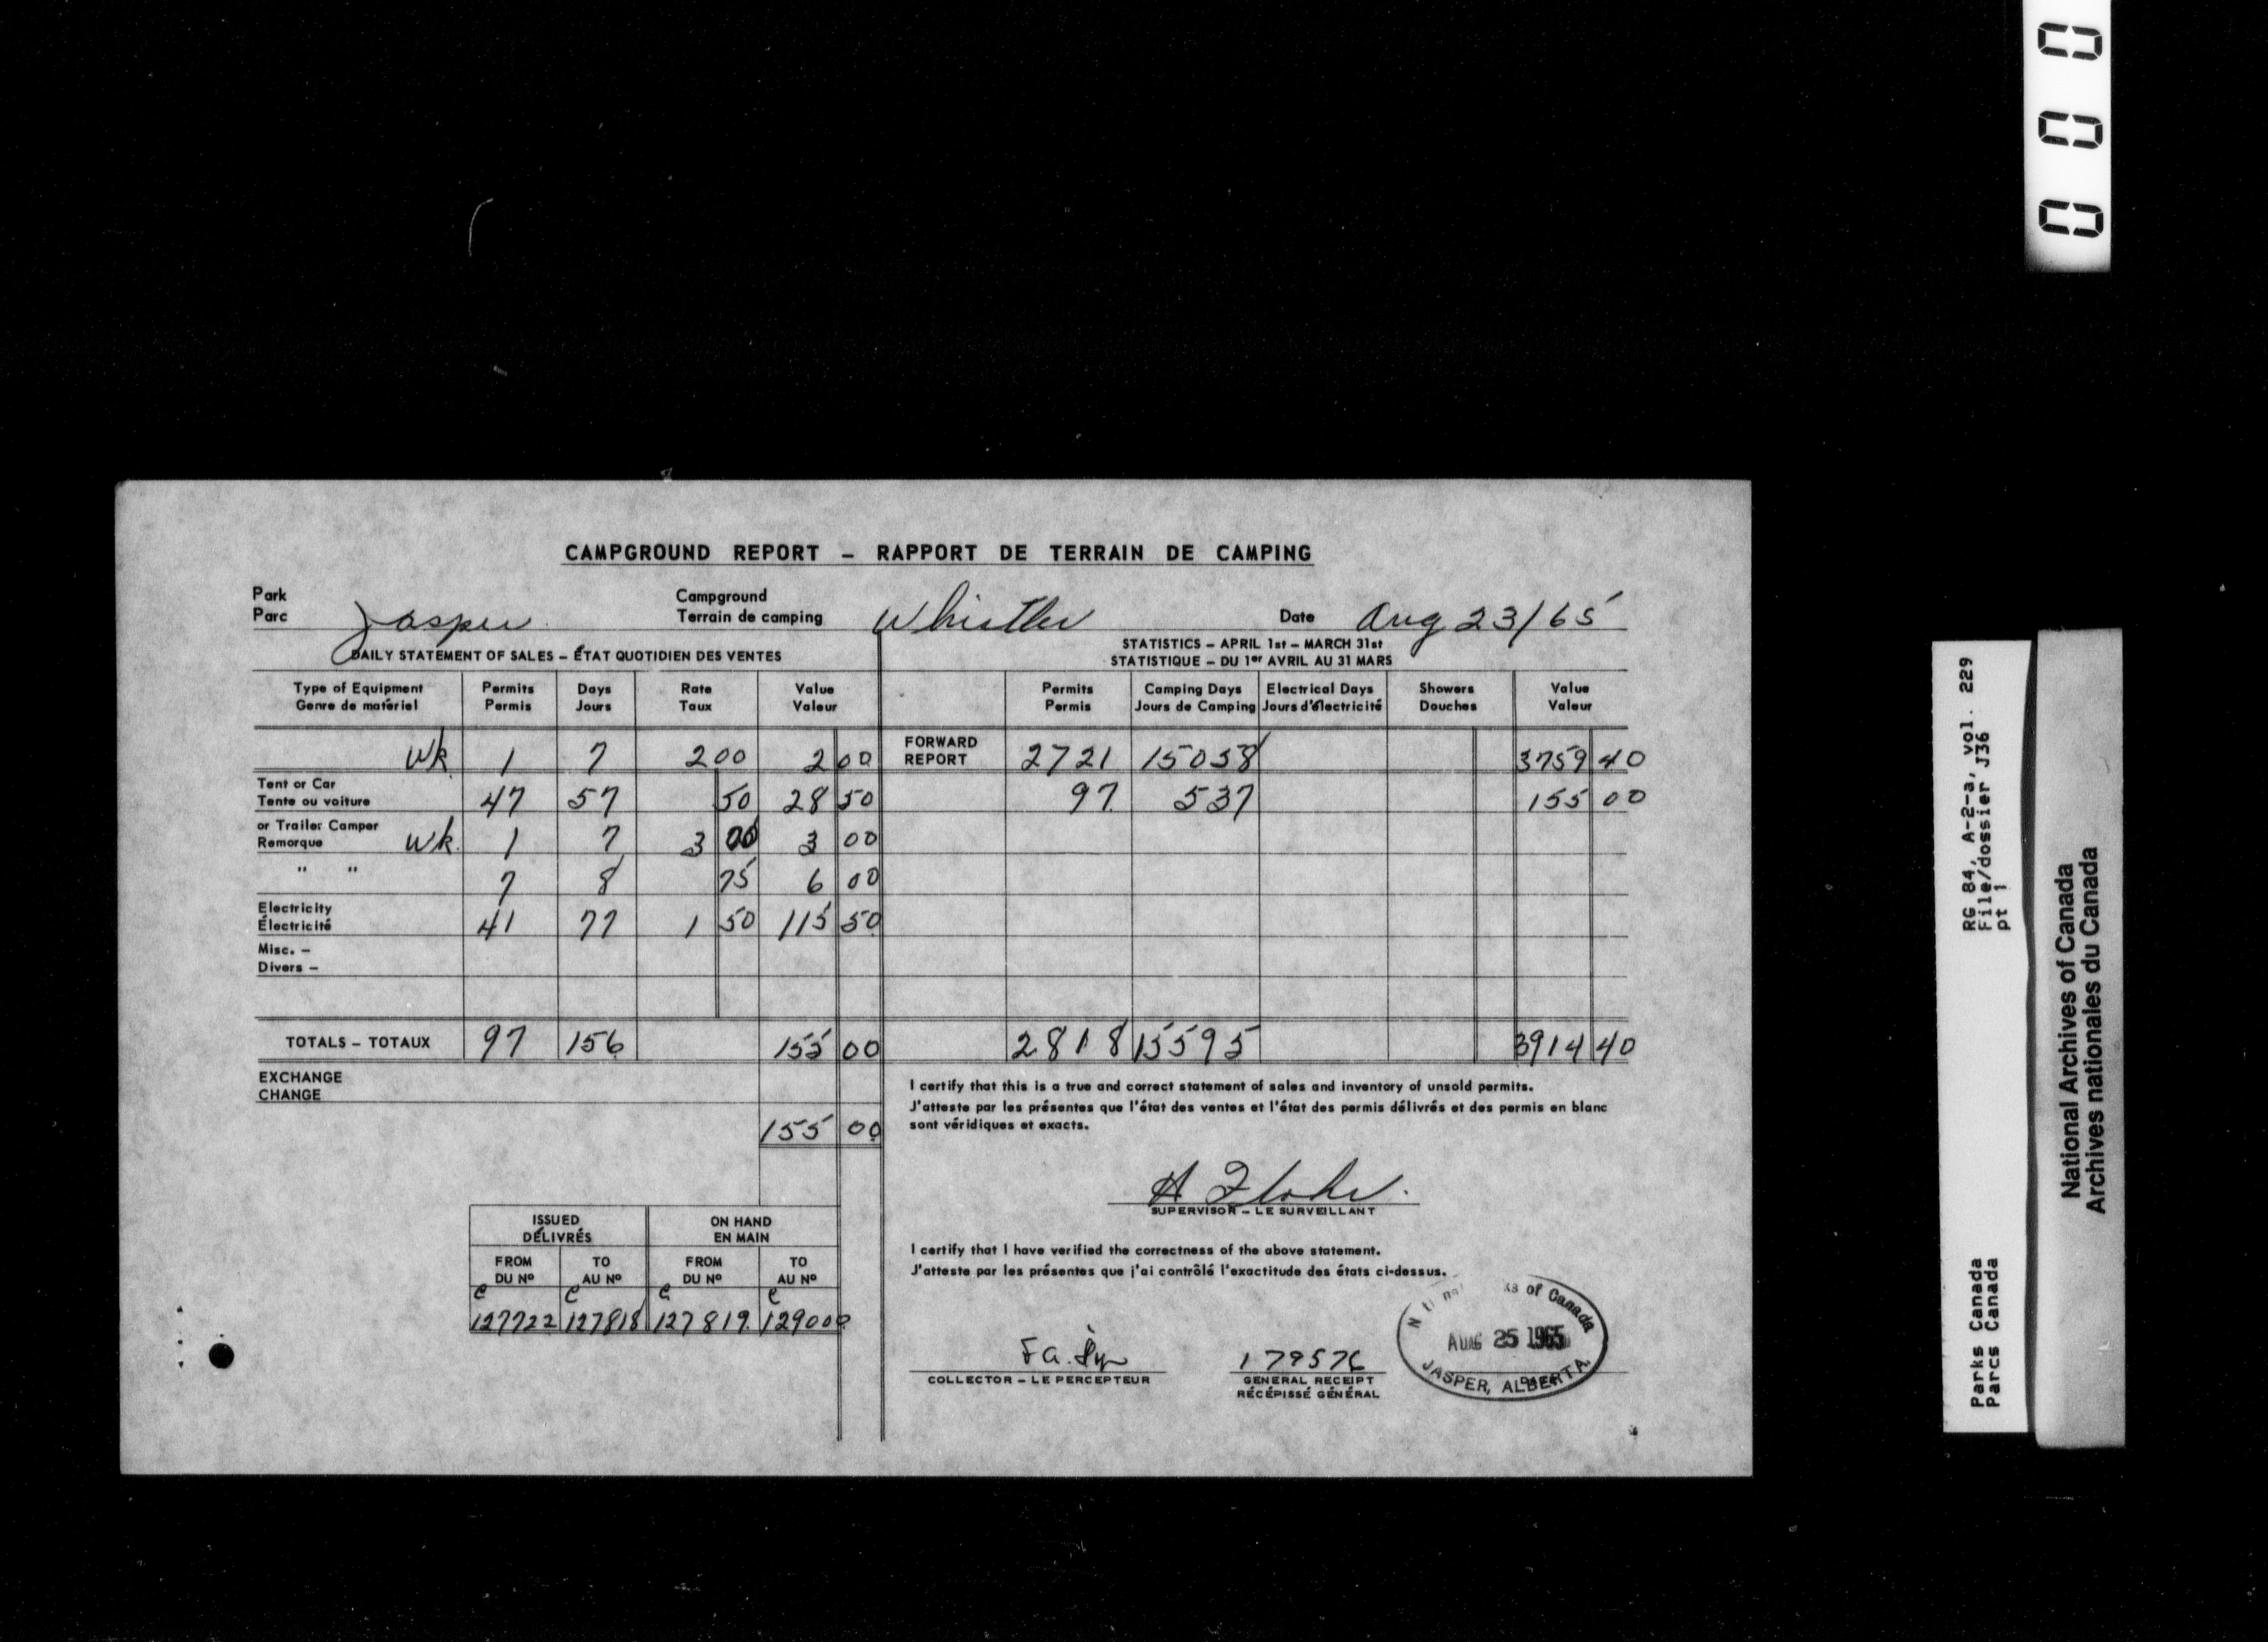 000
CAMPGROUND REPORT – RAPPORT DE TERRAIN DE CAMPING
Park
Parc Jasper
Campground
Terrain de camping Whistler
Date Aug 23/65
DAILY STATEMENT OF SALES – ÉTAT QUOTIDIEN DES VENTES
STATISTICS – APRIL 1st – MARCH 31st
STATISTIQUE – DU 1er AVRIL AU 31 MARS
Type of Equipment Permits Days Rate Value Permits Camping Days Electrical Days Showers Value
Genre de matériel Permis Jours Taux Valeur Permis Jours de Camping Jours d'électricité Douches Valeur
Wk 1 7 2 00 2 00 FORWARD REPORT 2721 15058 3759 40
Tent or Car
Tente ou voiture 47 57 50 28 50 97 537 155 00
or Trailer Camper
Remorque Wk. 1 7 3 00 3 00
" " 7 8 75 6 00
Electricity
Électricité 41 77 1 50 115 50
Misc. –
Divers –
TOTALS – TOTAUX 97 156 155 00 2818 15595 3914 40
EXCHANGE
CHANGE
155 00
I certify that this is a true and correct statement of sales and inventory of unsold permits.
J'atteste par les présentes que l'état des ventes et l'état des permis délivrés et des permis en blanc
sont véridiques et exacts.
SUPERVISOR – LE SURVEILLANT
ISSUED ON HAND
DÉLIVRÉS EN MAIN
FROM TO FROM TO
DU Nº AU Nº DU Nº AU Nº
C C C C
127722 127818 127819 129000
I certify that I have verified the correctness of the above statement.
J'atteste par les présentes que j'ai contrôlé l'exactitude des états ci-dessus.
179576
COLLECTOR – LE PERCEPTEUR
GENERAL RECEIPT
RÉCÉPISSÉ GÉNÉRAL
of Canada
AUG 25 1965
JASPER, ALBERTA
RG 84, A-2-a, vol. 229
File/dossier J36
pt 1
Parks Canada
Parcs Canada
National Archives of Canada
Archives nationales du Canada